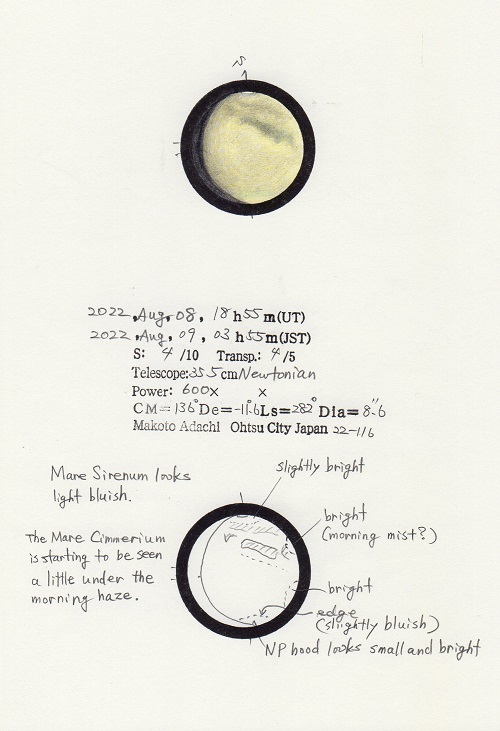 S
2022, Aug, 08, 18h55m(UT)
2022, Aug, 09, 03h55m(JST)
S: 4/10 Transp.: 4/5
Telescope: 35.5cm Newtonian
Power: 600X X
CM=136° De=-11.6 Ls=282° Dia=8".6
Makoto Adachi Ohtsu City Japan 22-116
Mare Sirenum looks
light bluish.
slightly bright
bright
(morning mist?)
The Mare Cimmerium
is starting to be seen
a little under the
morning haze.
bright
edge
(slightly bluish)
NP hood looks small and bright